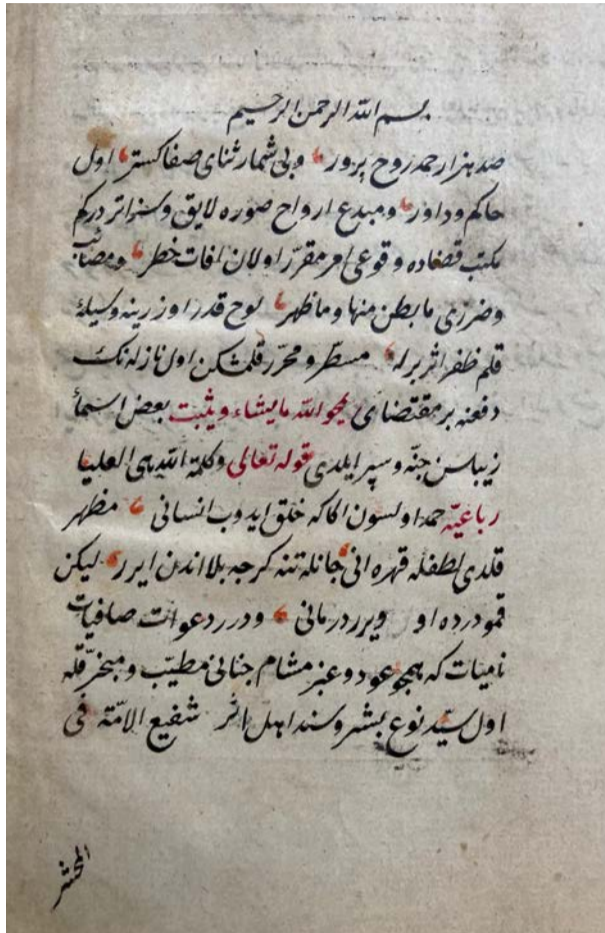 بسم الله الرحمن الرحيم
صد هزار حمد روح پرور و بی شمار ثنای صفا کستر اول
حاکم و داور و مبدع ارواح صوره لایق و سزاتر درکم
مکتب قضاده وقوعی امر مقرّر اولان افات خطر و مصائب
وضرری ما بطن منها و ما ظهر لوح قدر اوزرینه وسیلهٔ
قلم ظفر اثر برله مسطّر و محرّر قلمشکن اول نازله نک
دفعنه بر مقتضای یمحو الله ما یشاء و یثبت بعض اسماء
زیباسن جنّه و سپر ایلدی قوله تعالی و کلمة الله هی العلیا
رباعیّه حمد اولسون اکا که خلق ایدوب انسانی مظهر
قلدی لطفله قهره انی جانله تنه کرچه بلا اندن ایرر لیکن
قمو درده او ویرر درمانی و درر دعوات صافیات
نامیات که همچو عود و عنبر مشام جنانی مطیّب و مبخّر قله
اول سیّد نوع بشر و سند اهل اثر شفیع الامّة فی
المحشر